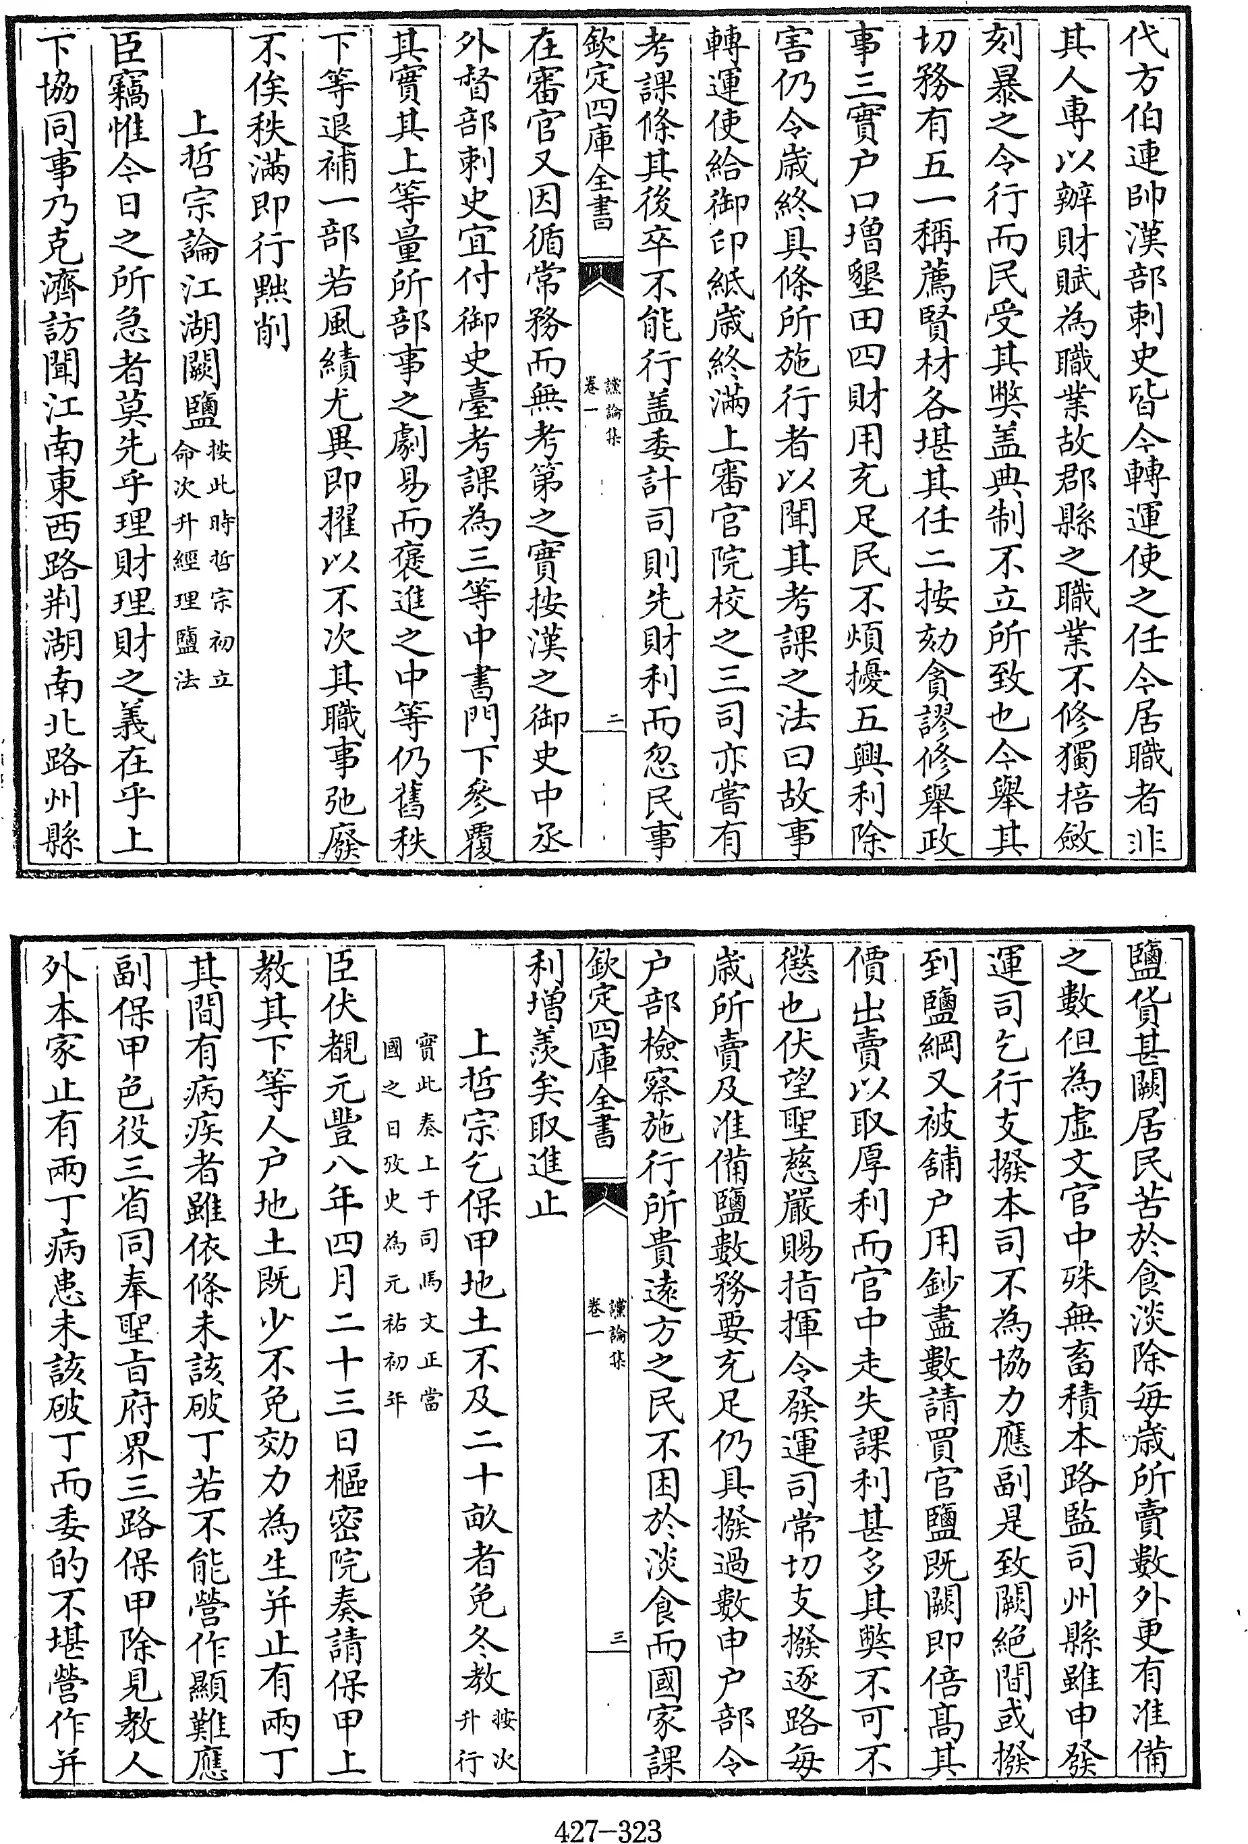 代方伯連帥漢部刺史皆今轉運使之任今居職者非
其人專以辦財賦為職業故郡縣之職業不修獨掊斂
刻暴之令行而民受其弊盖典制不立所致也今舉其
切務有五一稱薦賢材各堪其任二按劾貪謬修舉政
事三實户口增墾田四財用充足民不煩擾五興利除
害仍令歲終具條所施行者以聞其考課之法曰故事
轉運使給御印紙歲終滿上審官院校之三司亦嘗有
考課條其後卒不能行盖委計司則先財利而忽民事
欽定四庫全書
讜論集
卷一
二
在審官又因循常務而無考第之實按漢之御史中丞
外督部刺史宜付御史臺考課為三等中書門下參覆
其實其上等量所部事之劇易而褒進之中等仍舊秩
下等退補一部若風績尤異即擢以不次其職事弛廢
不俟秩滿即行黜削
上哲宗論江湖闕鹽
按此時哲宗初立
命次升經理鹽法
臣竊惟今日之所急者莫先乎理財理財之義在乎上
下協同事乃克濟訪聞江南東西路荆湖南北路州縣
鹽貨甚闕居民苦於食淡除每歲所賣數外更有准備
之數但為虛文官中殊無畜積本路監司州縣雖申發
運司乞行支撥本司不為協力應副是致闕絕間或撥
到鹽綱又被舖户用鈔盡數請買官鹽既闕即倍髙其
價出賣以取厚利而官中走失課利甚多其弊不可不
懲也伏望聖慈嚴賜指揮令發運司常切支撥逐路每
歲所賣及准備鹽數務要充足仍具撥過數申户部令
户部檢察施行所貴遠方之民不困於淡食而國家課
欽定四庫全書
讜論集
卷一
三
利增羨矣取進止
上哲宗乞保甲地土不及二十畝者免冬教
按次
升行
實此奏上于司馬文正當
國之日攷史為元祐初年
臣伏覩元豐八年四月二十三日樞密院奏請保甲上
教其下等人户地土既少不免効力為生并止有兩丁
其間有病疾者雖依條未該破丁若不能營作顯難應
副保甲色役三省同奉聖旨府界三路保甲除見教人
外本家止有兩丁病患未該破丁而委的不堪營作并
427-323